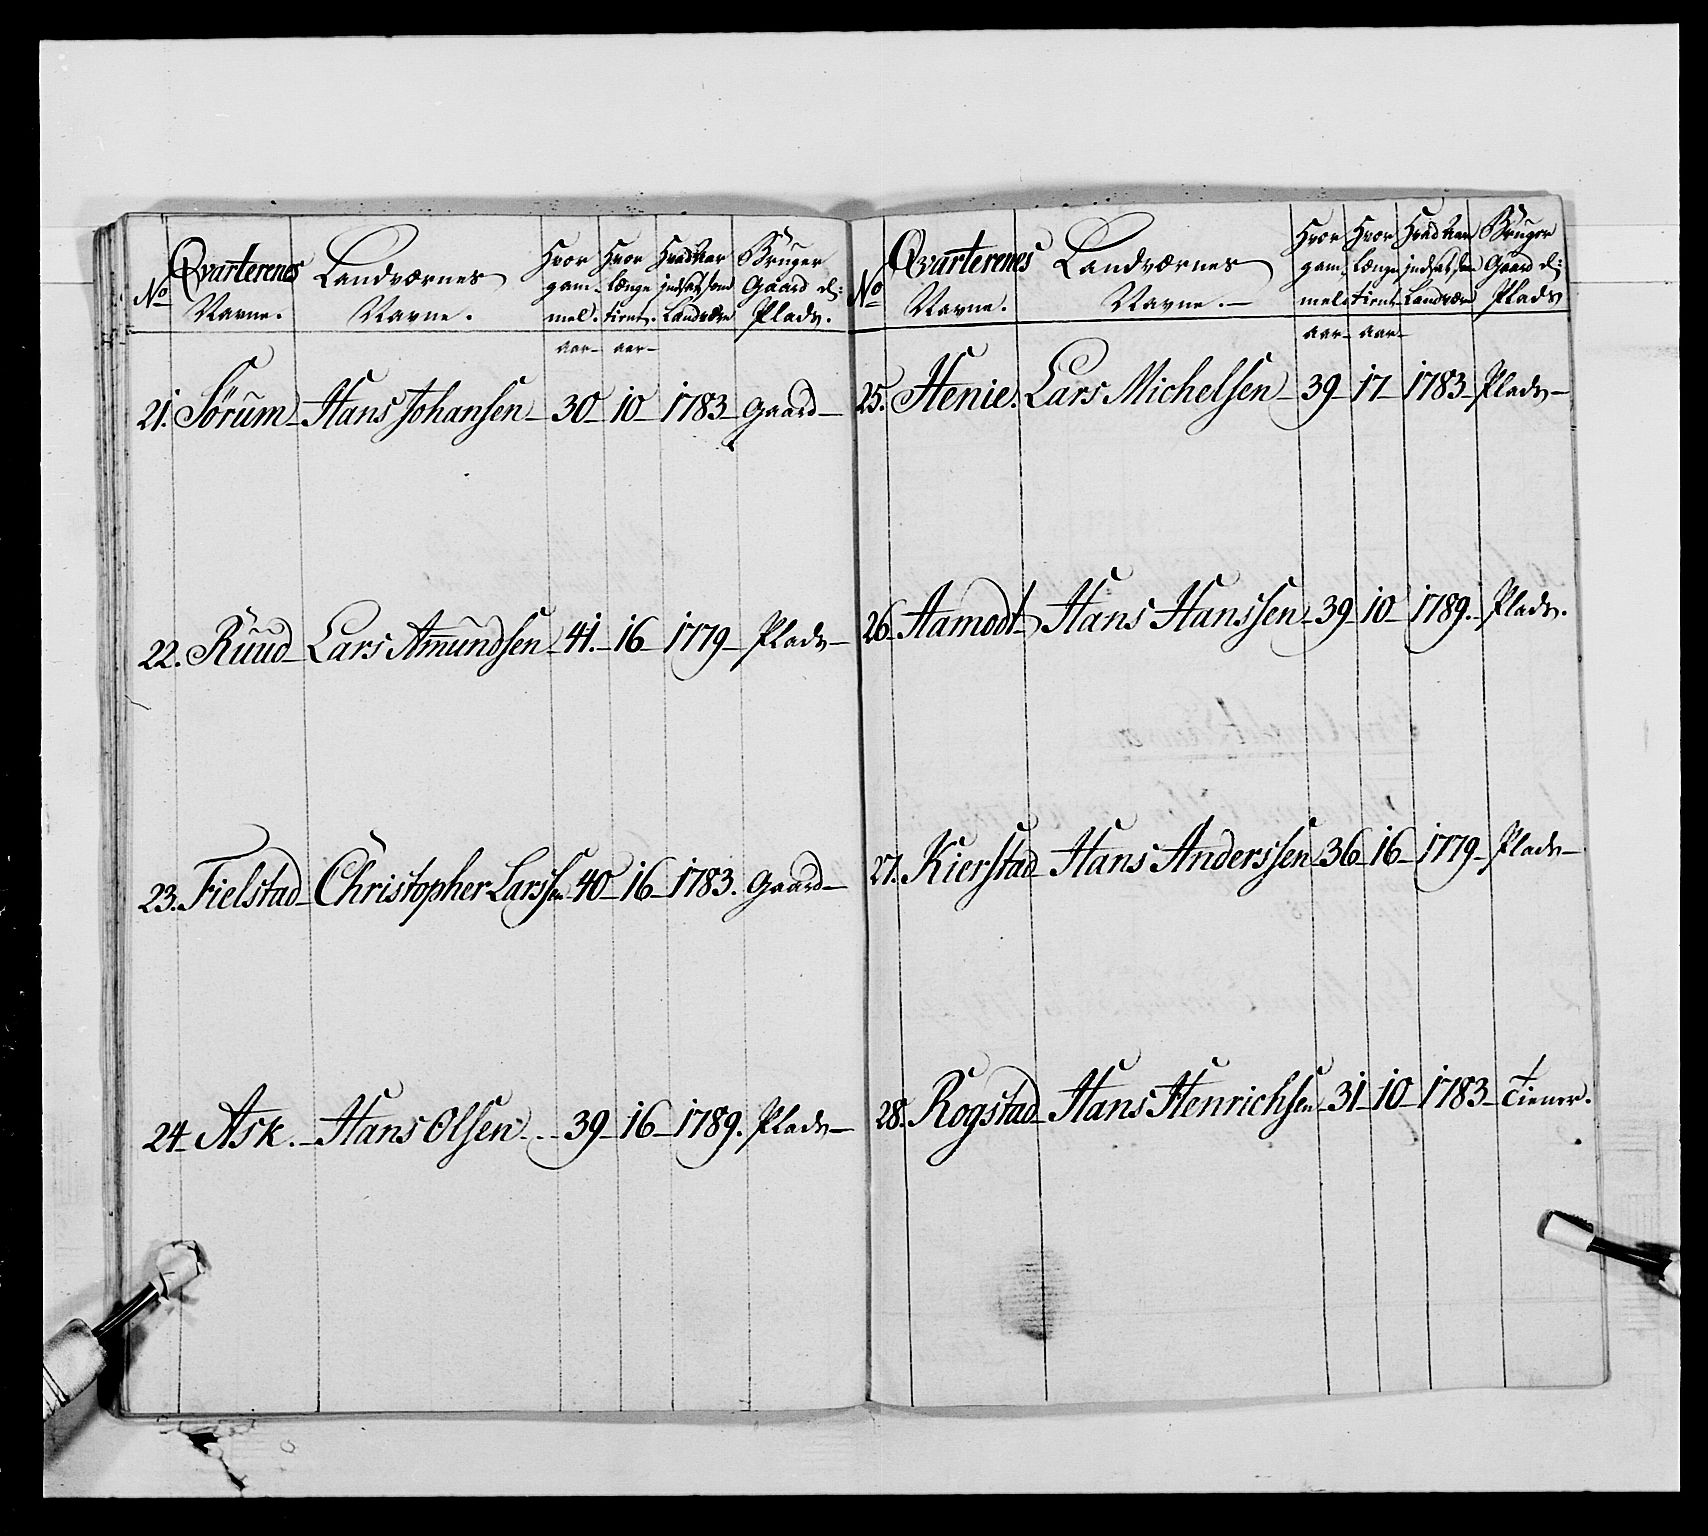 No Qvarterenes Navne. Landværnes Navne. Hvor gam- mel. Hvor længe tient. Hvad Aar indsat som Landværn Bruger Gaard el: Plads.
aar aar
21. Sörum Hans Johansen 30 10 1783 Gaard
22. Ruud Lars Amundsen 41. 16 1779 Plads
23. Fielstad Christopher Larssen 40 16 1783. Gaard
24 Ask. Hans Olsen 39 16 1789. Plads
No Qvarterenes Navne. Landværnes Navne. Hvor gam- mel Hvor længe tient Hvad Aar indsat som Landværn Bruger Gaard el: Plads
aar aar
25. Henie. Lars Michelsen 39 17 1783 Plads
26 Aamodt Hans Hanssen 39 10 1789. Plads.
27. Kierstad Hans Anderssen 36 16 1779 Plads
28. Rogstad Hans Henrichsen 31 10 1783 Tiener.